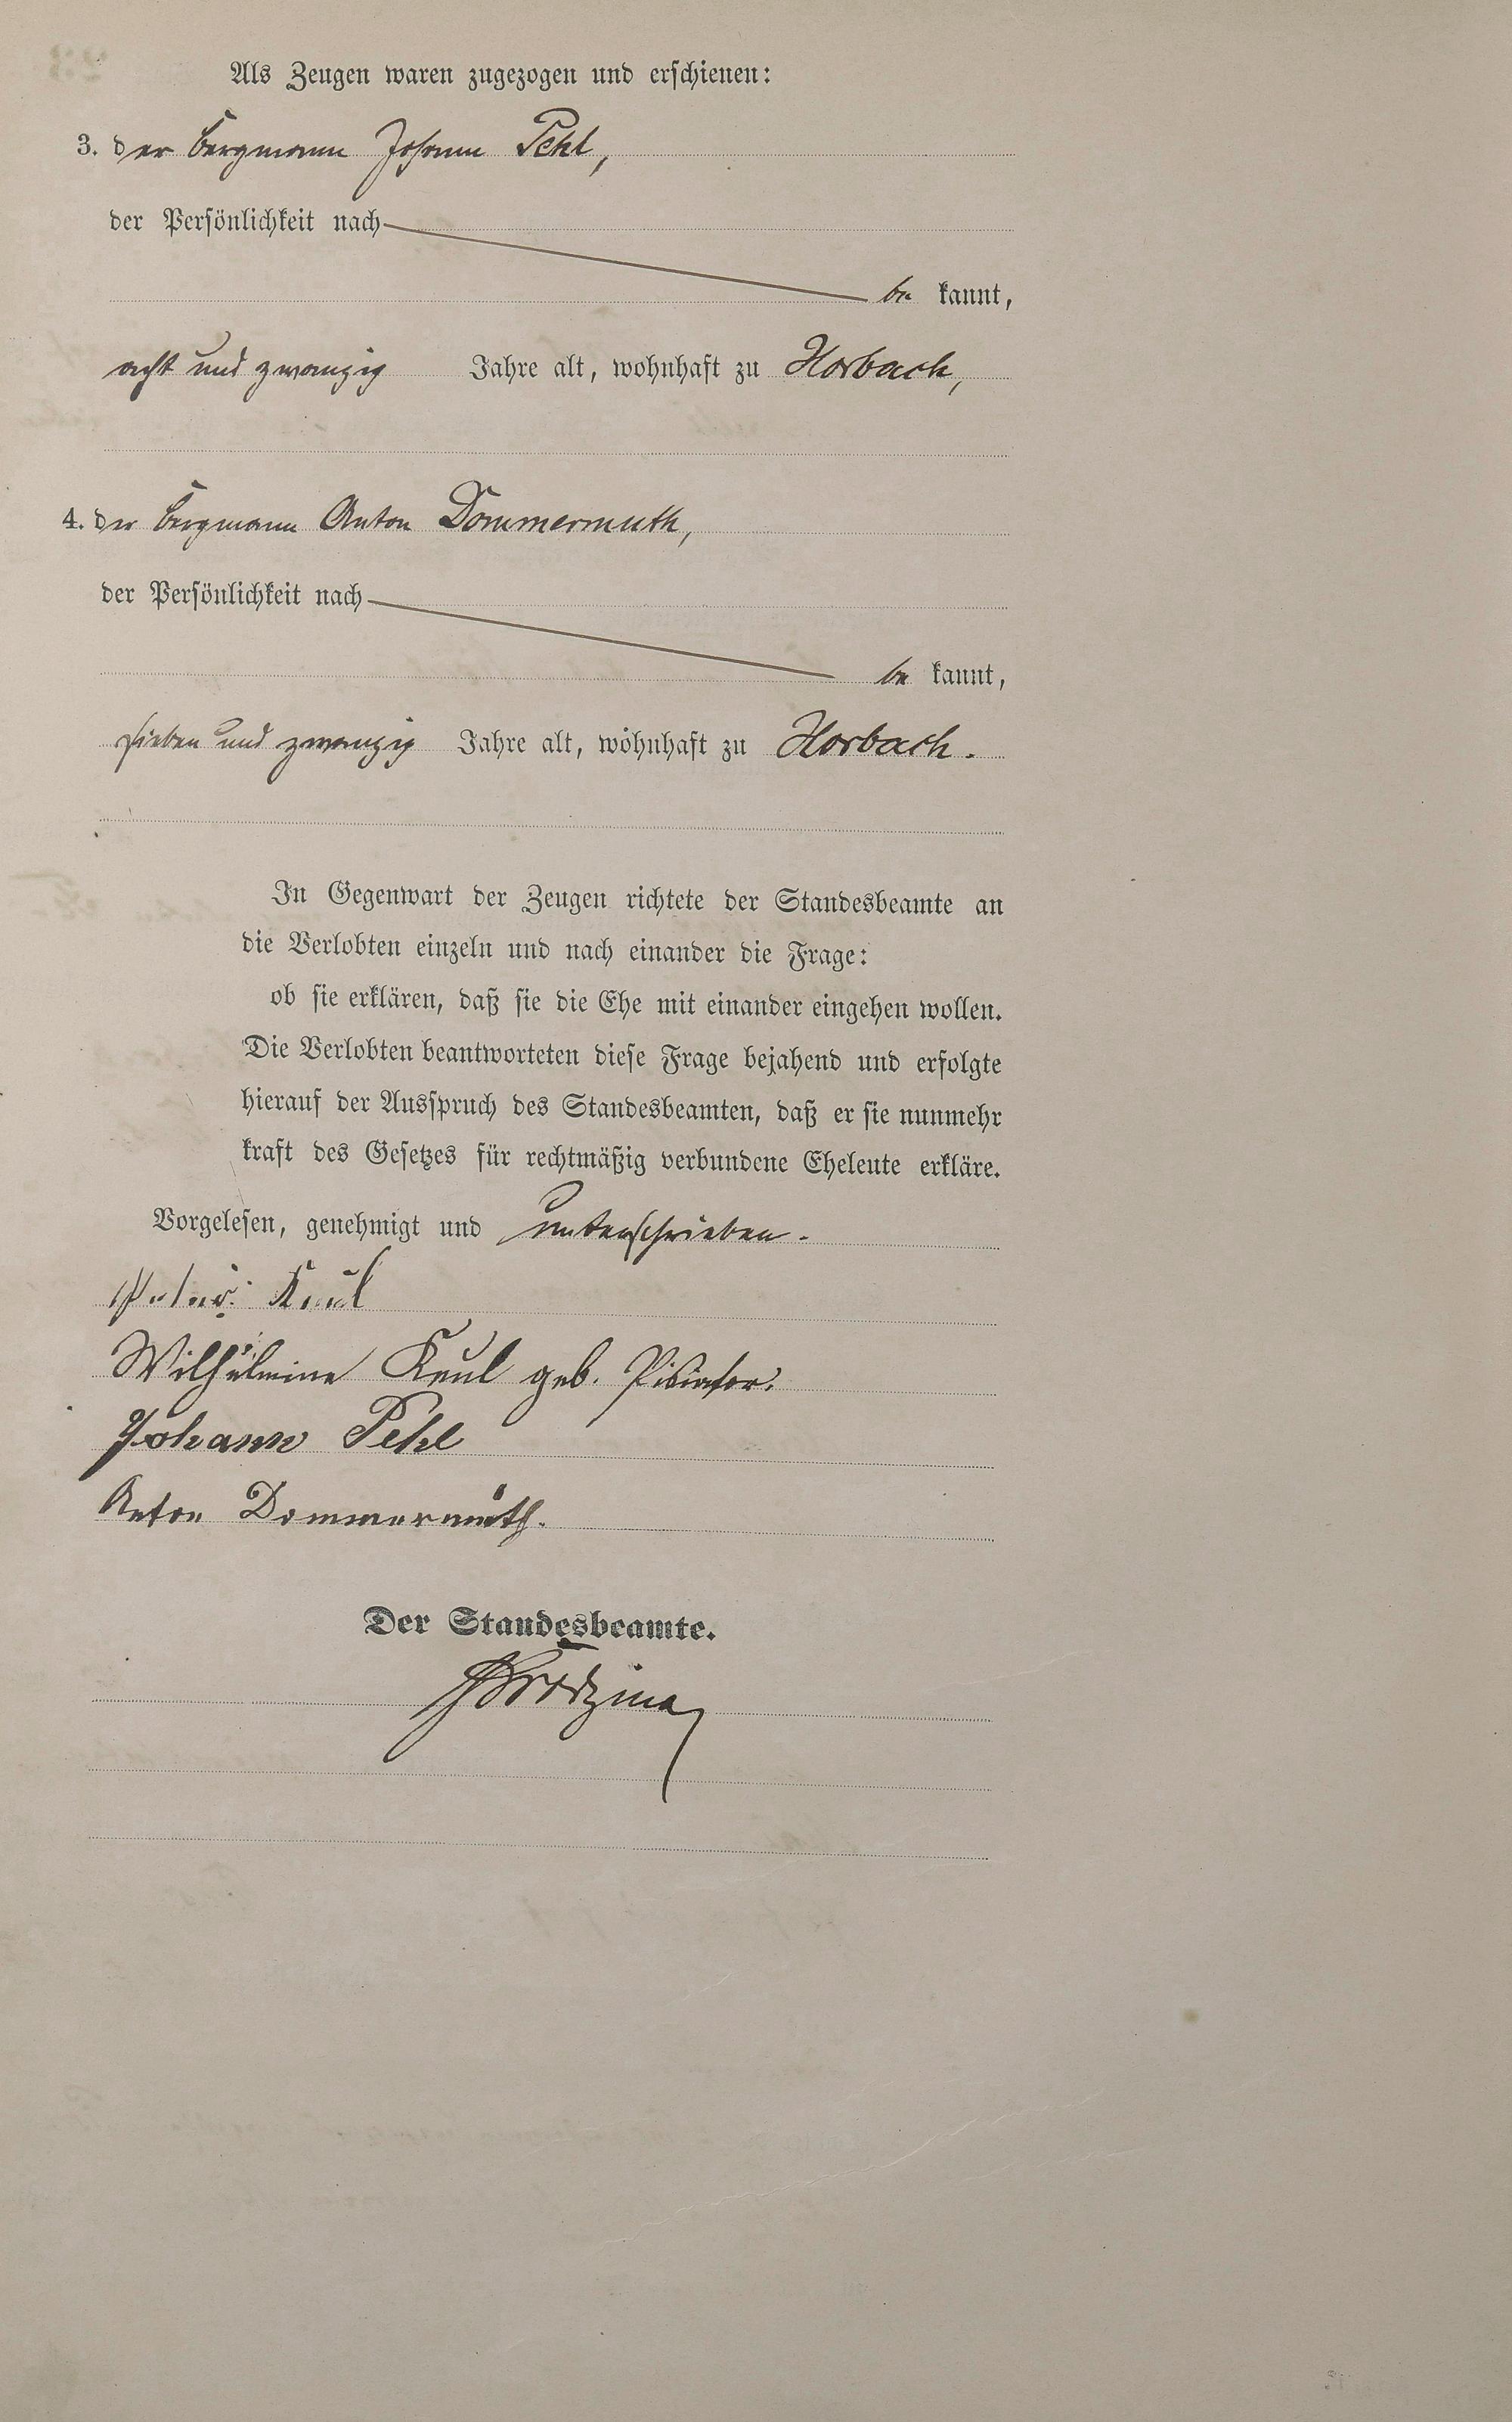 Als Zeugen waren zugezogen und erschienen:
3. der Bergmann Johann Pehl,
der Persönlichkeit nach
be kannt,
acht und zwanzig Jahre alt, wohnhaft zu Horbach,
4. der Bergmann Anton Dommermuth,
der Persönlichkeit nach
be kannt,
sieben und zwanzig Jahre alt, wohnhaft zu Horbach.
In Gegenwart der Zeugen richtete der Standesbeamte an
die Verlobten einzeln und nach einander die Frage:
ob sie erklären, daß sie die Ehe mit einander eingehen wollen.
Die Verlobten beantworteten diese Frage bejahend und erfolgte
hierauf der Ausspruch des Standesbeamten, daß er sie nunmehr
kraft des Gesetzes für rechtmäßig verbundene Eheleute erkläre.
Vorgelesen, genehmigt und unterschrieben.
Peter Keul
Wilhelmine Keul geb. Pisiator.
Johann Pehl
Anton Dommermuth.
Der Standesbeamte.